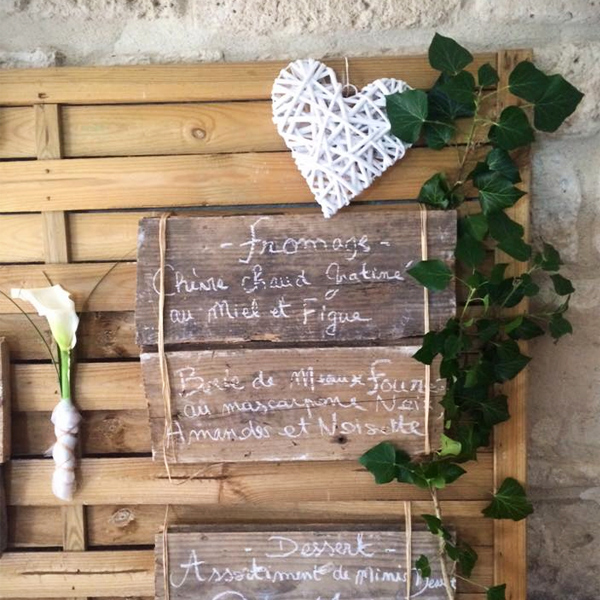 - Fromage -
Chèvre chaud Gratiné
au Miel et Figue
Brie de Meaux
au mascarpone Noix
Amandes et Noisette
- Dessert -
Assortiment de Minis